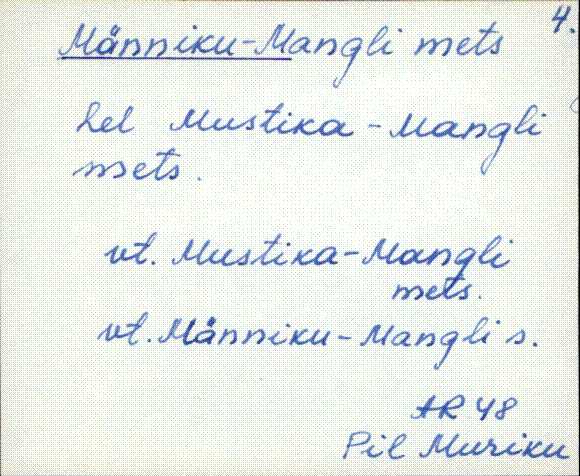 4.
Männiku-Mangli mets
Lel Mustika-Mangli
mets.
vt. Mustika-Mangli
mets.
vt. Männiku-Mangli s.
AR 48
Pil Muriku